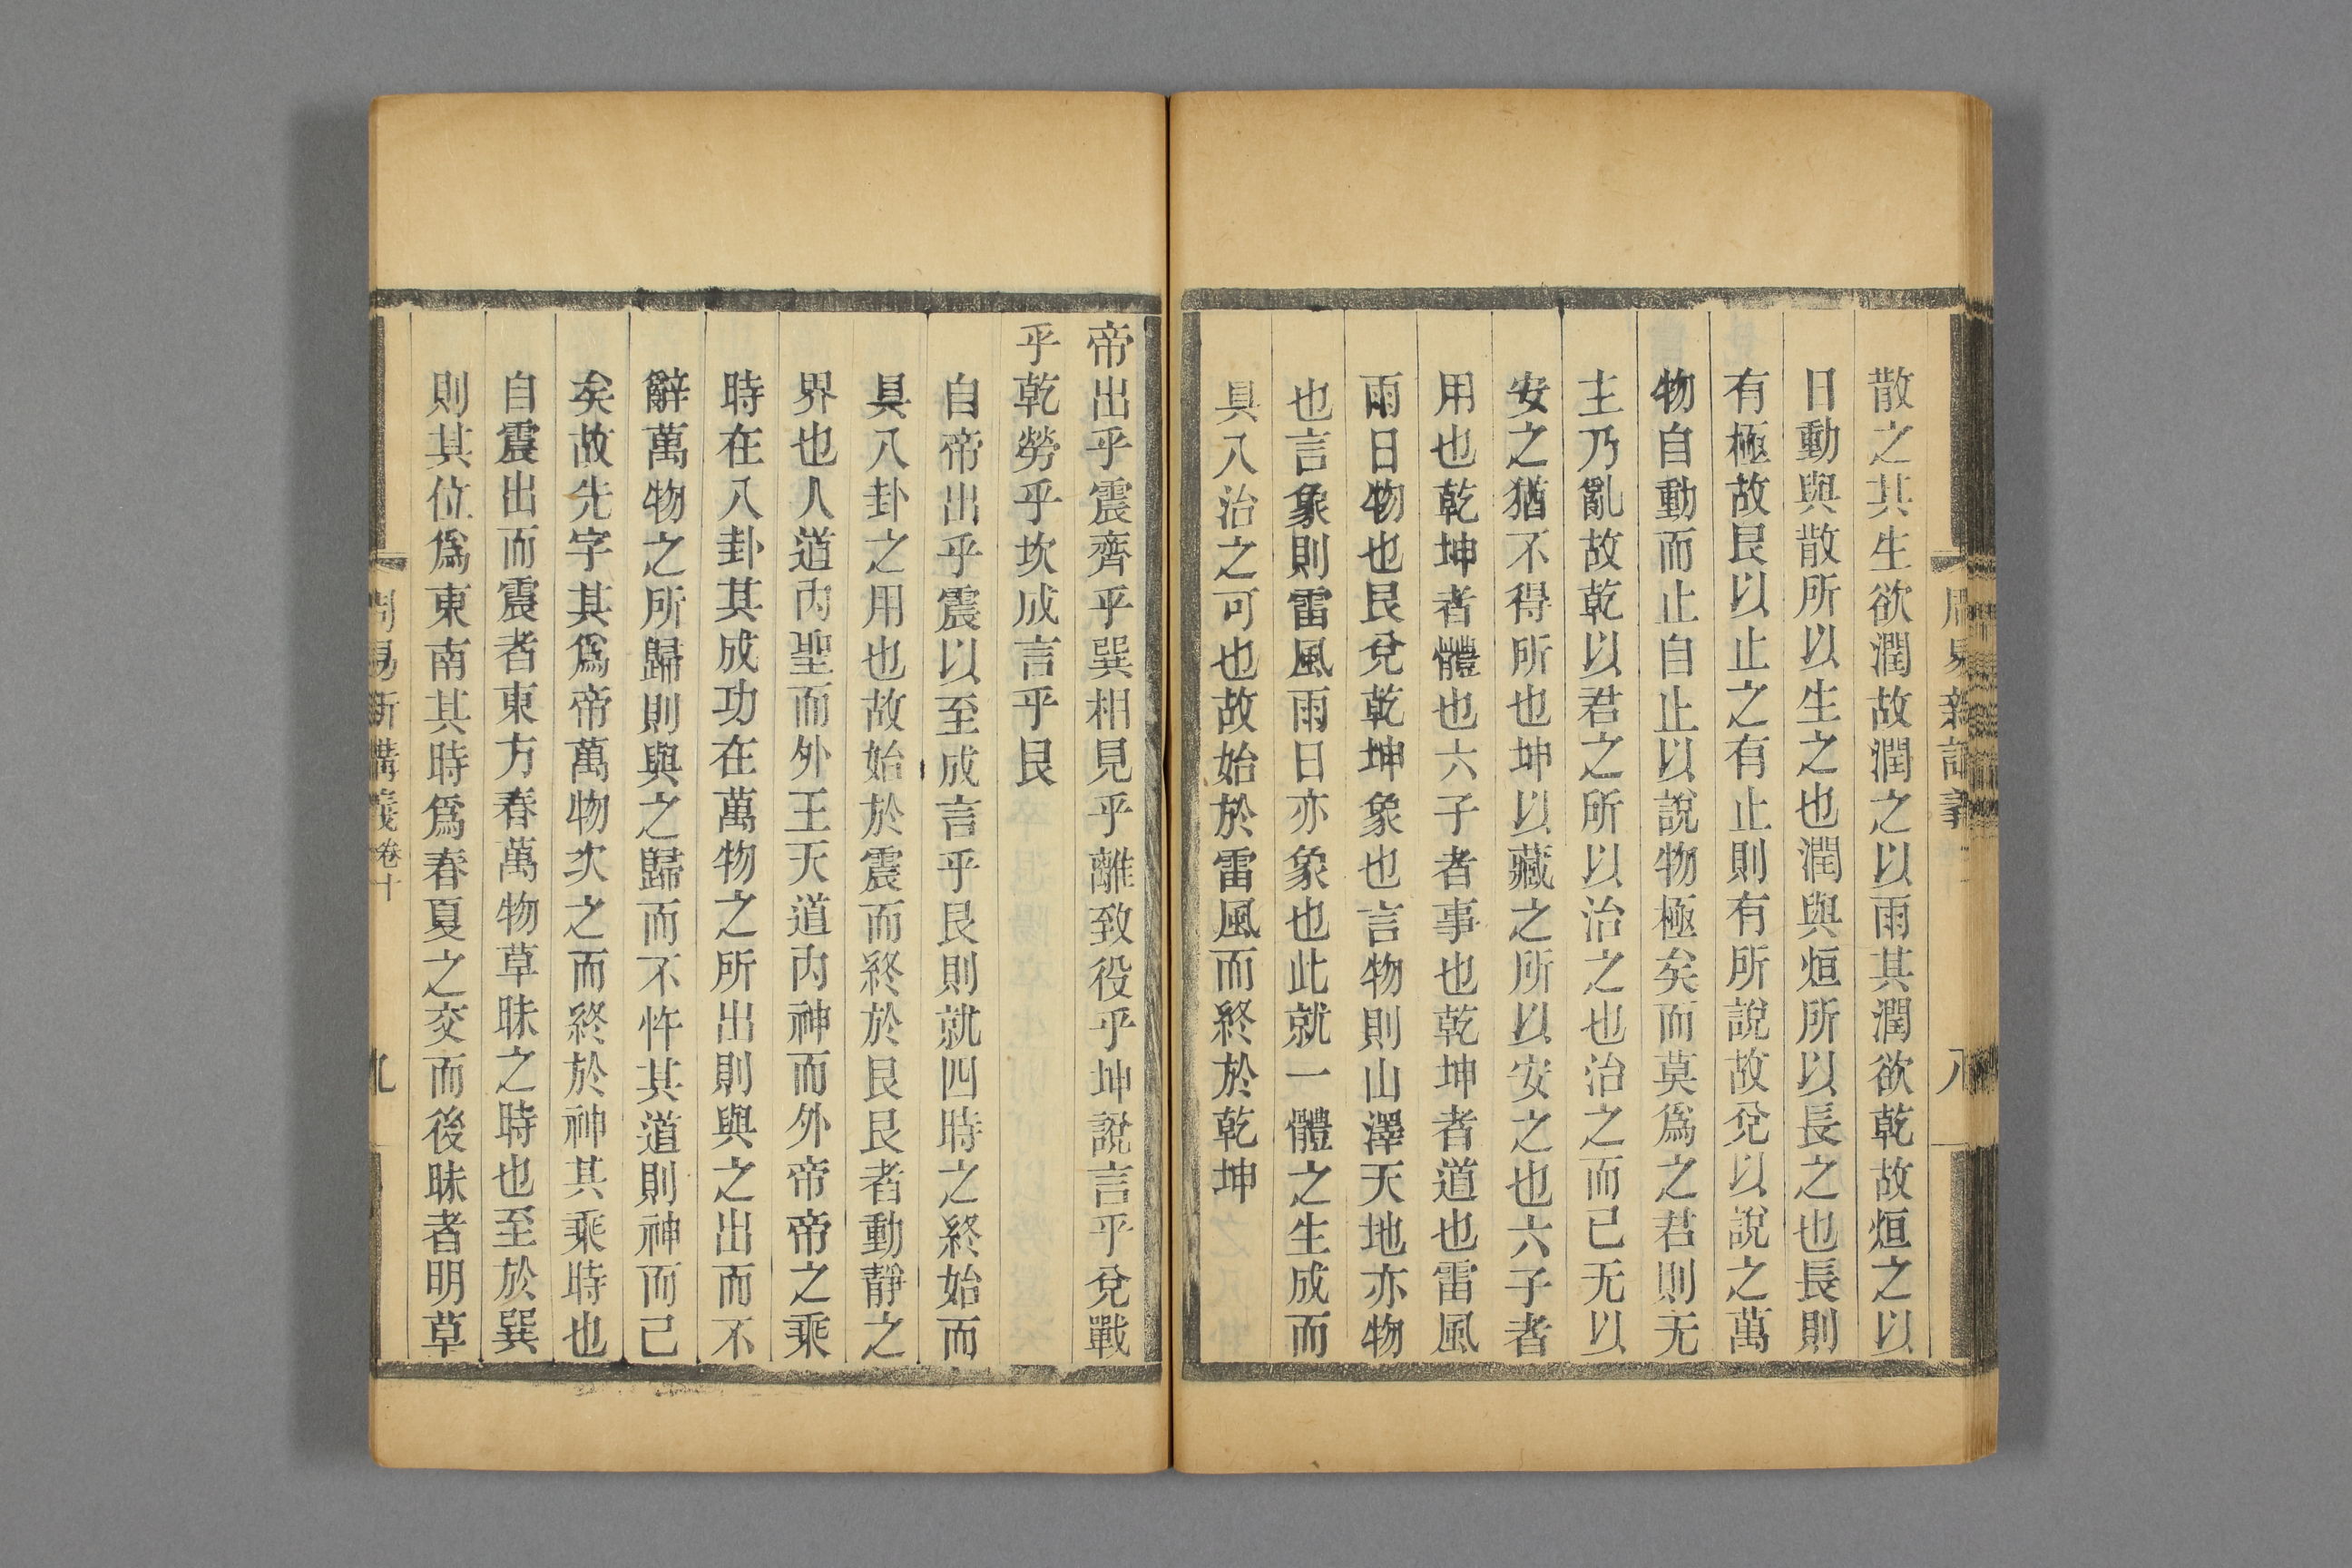 散之其生欲潤故潤之以雨其潤欲乾故烜之以
日動與散所以生之也潤與烜所以長之也長則
有極故艮以止之有止則有所說故兌以說之萬
物自動而止自止以說物極矣而莫爲之君則无
主乃亂故乾以君之所以治之也治之而已无以
安之猶不得所也坤以藏之所以安之也六子者
用也乾坤者體也六子者事也乾坤者道也雷風
雨日物也艮兌乾坤象也言物則山澤天地亦物
也言象則雷風雨日亦象也此就一體之生成而
具八治之可也故始於雷風而終於乾坤
八
帝出乎震齊乎巽相見乎離致役乎坤說言乎兌戰
乎乾勞乎坎成言乎艮
自帝出乎震以至成言乎艮則就四時之終始而
具八卦之用也故始於震而終於艮艮者動靜之
界也人道內聖而外王天道內神而外帝帝之乘
時在八卦其成功在萬物之所出則與之出而不
辭萬物之所歸則與之歸而不忤其道則神而已
矣故先字其爲帝萬物次之而終於神其乘時也
自震出而震者東方春萬物草昧之時也至於巽
則其位爲東南其時爲春夏之交而後昧者明草
周易新講義卷十
九